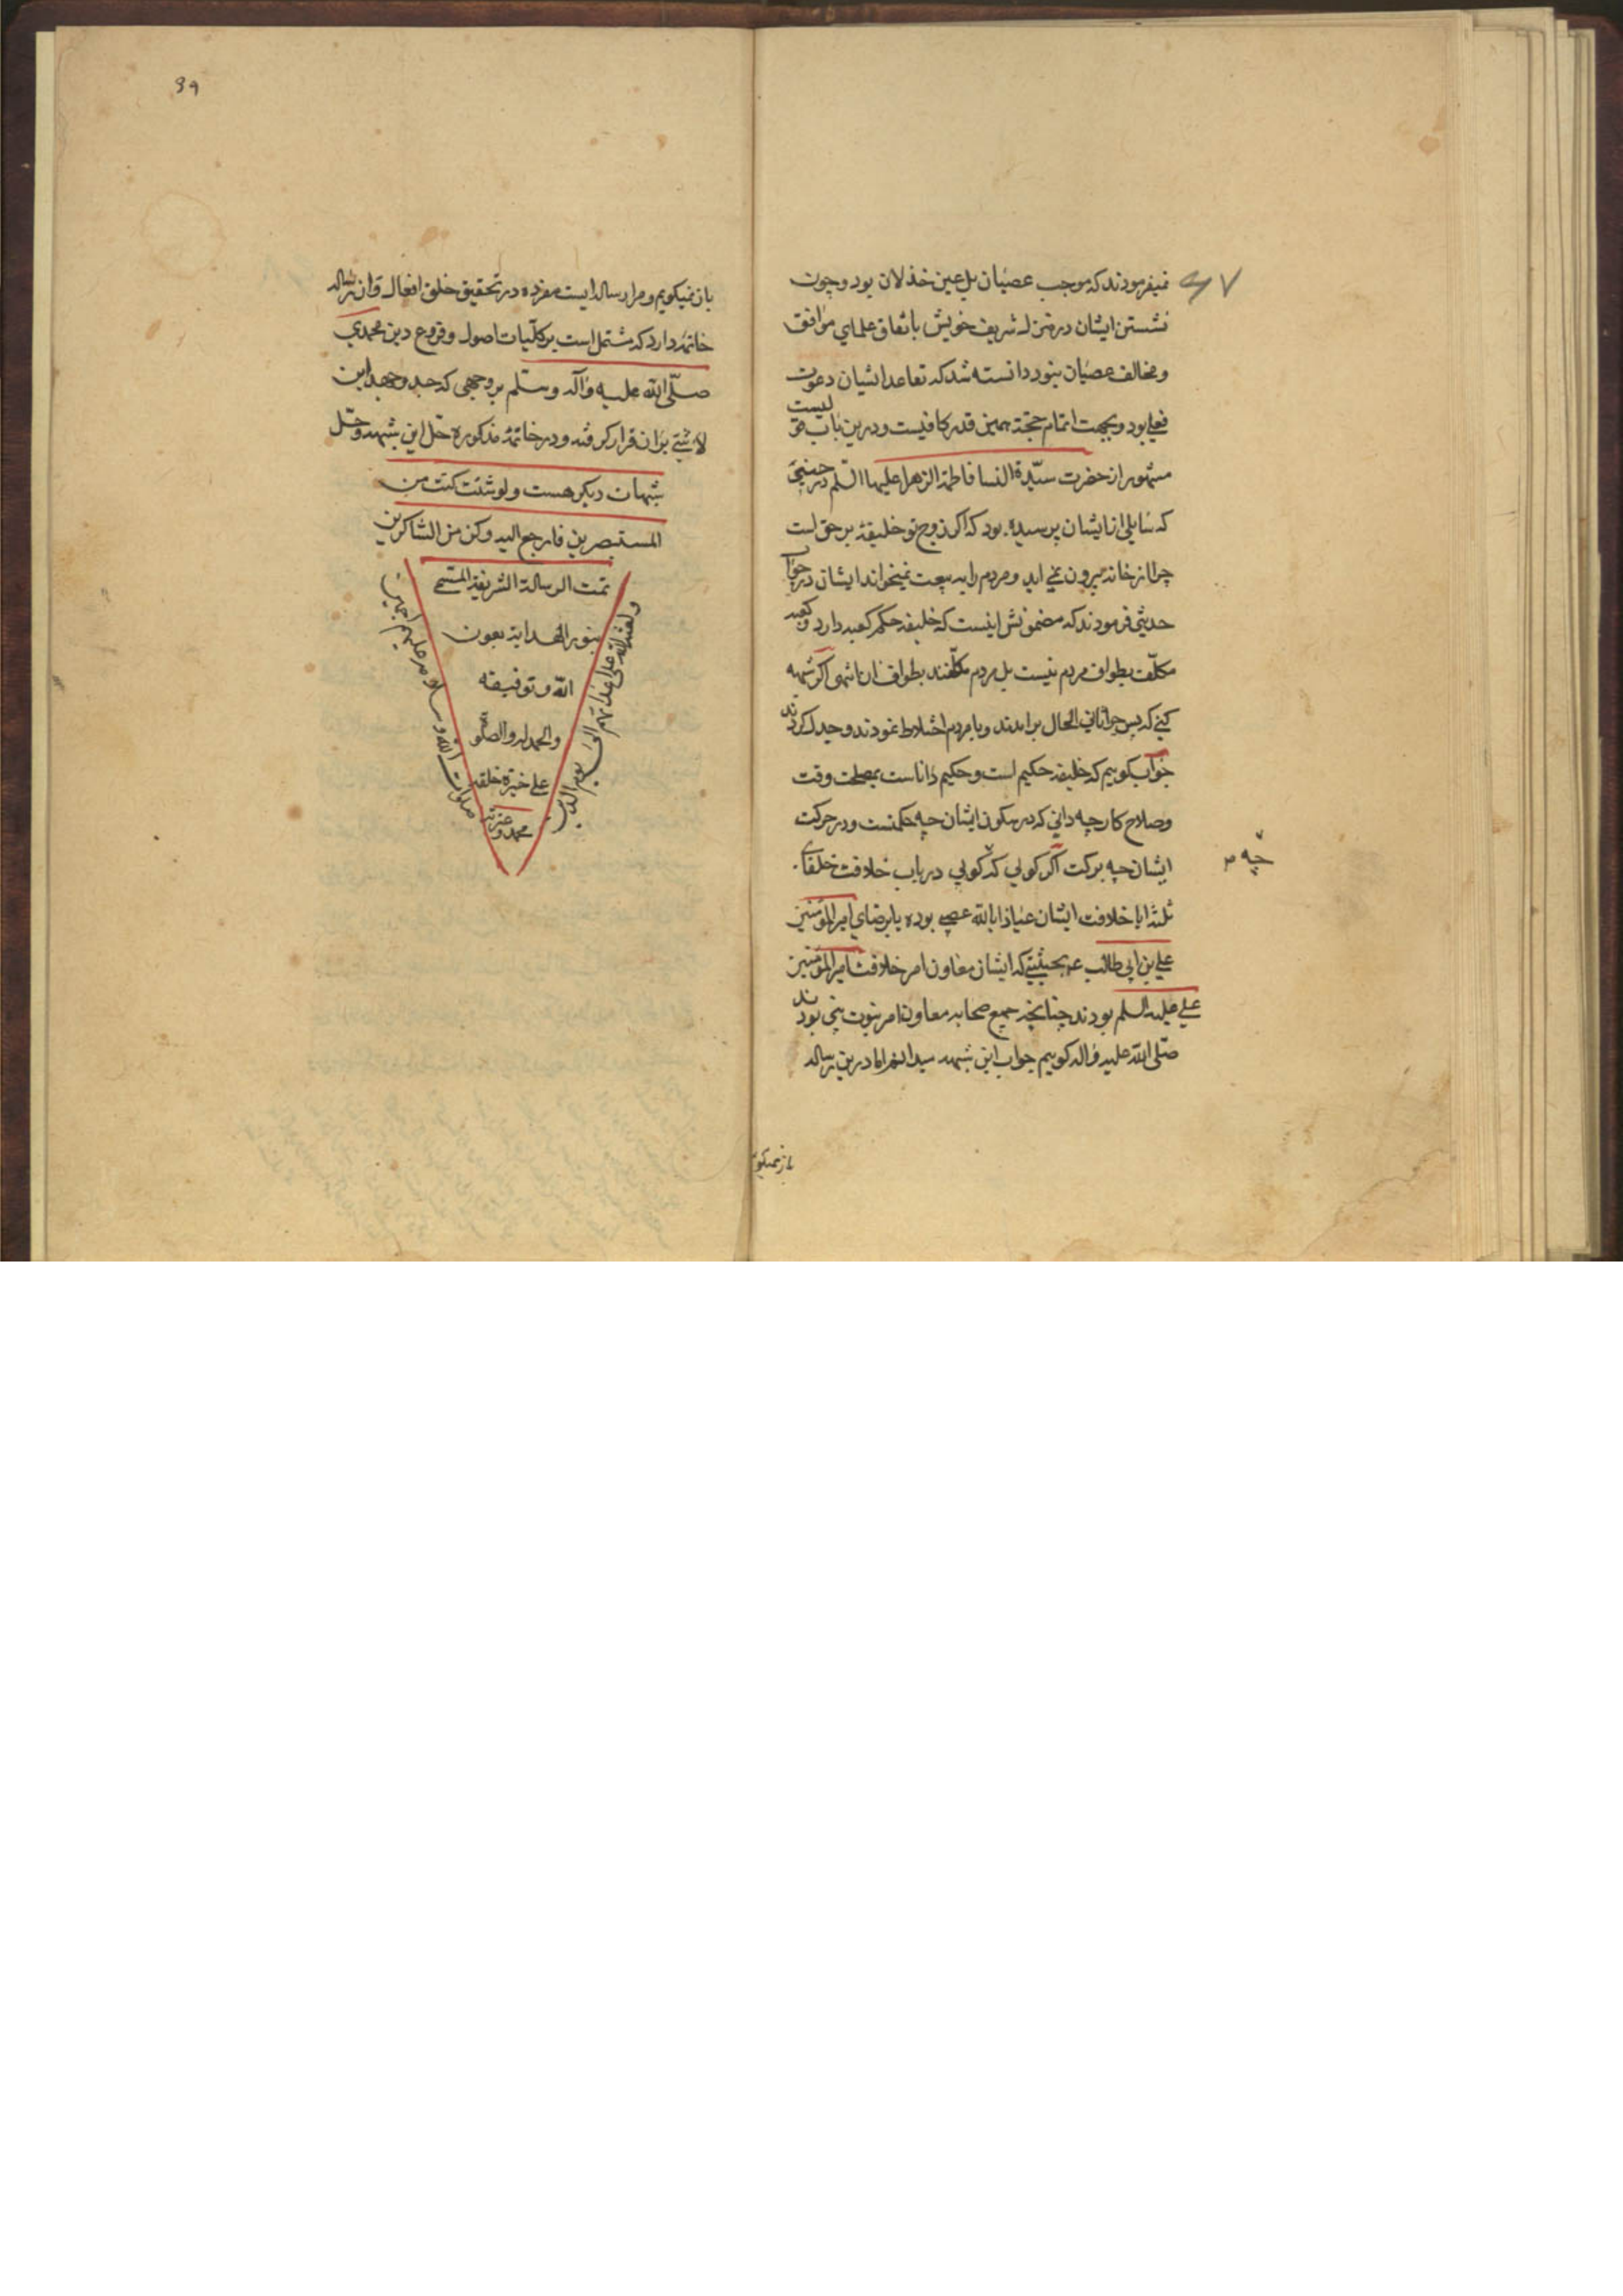 نمیفرمودند که موجب عصیان بل عین خذلان بود و چون
نشستن ایشان در منزل شریف خویش باتفاق علمای موافق
و مخالف عصیان نبود دانسته شد که تقاعد ایشان دعوت
فعلی بود و بجهت اتمام حجة همین قدر کافیست و درین باب حدیثیست
مشهور از حضرت سیّدة النسا فاطمة الزهرا علیها السلم در حینی
که سایلی از ایشان پرسیده بود که اگر زوج تو خلیفهٔ بر حق است
چرا از خانه بیرون نمی آید و مردم را به بیعت نمیخواند ایشان در جواب
حدیثی فرمودند که مضمونش اینست که خلیفه حکم کعبه دارد و کعبه
مکلّف بطواف مردم نیست بل مردم مکلّفند بطواف آن انتهی اگر شبهه
کنی که پس چرا ثانی الحال برامدند و با مردم اختلاط نمودند و جدل کردند
جواب گوییم که خلیفه حکیم است و حکیم داناست بمصلحت وقت
و صلاح کار چه دانی که در سکون ایشان چه حکمتست و در حرکت
ایشان چه برکت اگر گویی که گویی در باب خلافت خلفای
چه
ثلثه ایا خلافت ایشان عیاذا بالله عصبی بوده یا برضای امیر المؤمنین
علی بن ابی طالب ع بحیثیتی که ایشان معاون امر خلافت امیر المؤمنین
علی علیه السلم بودند چنانچه جمیع صحابه معاون امر نبوت نبی بودند
صلّی الله علیه و اله گوییم جواب این شبهه سیدالغرا ما درین رساله
باز نمیگوییم
باز نمیگویم و مرا رساله ایست مفرده در تحقیق خلق افعال و ان رساله
خاتمهٔ دارد که مشتمل است بر کلّیات اصول و فروع دین محمدی
صلّی الله علیه و آله و سلّم بر وجهی که جد و جهد این
لا شیٔ بر ان قرار گرفته و در خاتمهٔ مذکوره حل این شبهه و حلّ
شبهات دیگر هست و لو شئت کنت من
المستبصرین فارجع الیه و کن من الشاکرین
تمت الرسالة الشریفة المسمی
بنور الهدایة بعون
الله و توفیقه
و الحمد لله و الصلوة
علی خیرة خلقه
محمد و عترته
صلوات الله و سلامه علیهم اجمعین
و لعنة الله علی اعدائهم الی یوم الدین